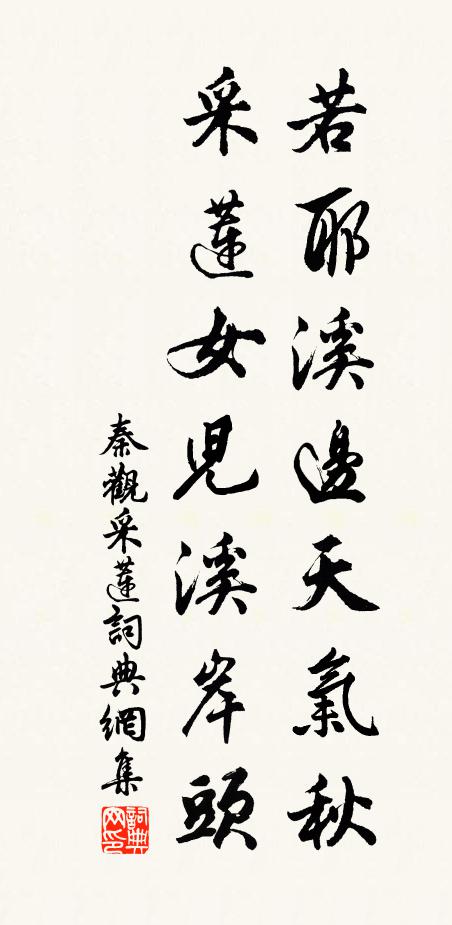 若耶溪邊天氣秋
采蓮女兒溪岸頭
秦觀采蓮詞典網集
詞典网印